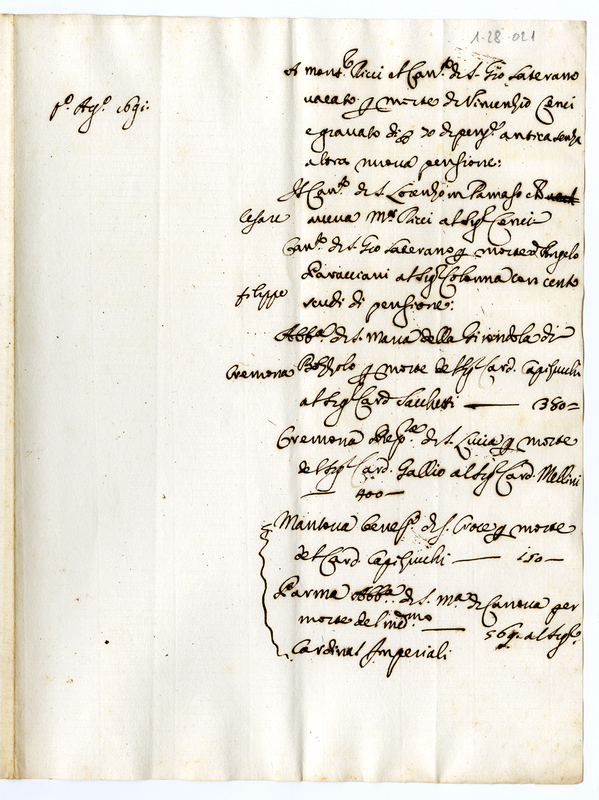 1-28-021
A mons.r Ricci il Can.to di S. Gio Laterano
p.o Ag.o 1691.
vacato p morte di Vincenzio Cenci
e gravato di 70 di pens.e antica senza
altra nuova pensione:
Il Can.to di S. Lorenzo in Damaso che
Cesare aveva M.r Ricci al Sig.r Cenci
Can.to di S. Gio Laterano p morte d'Angelo
Paracciani al Sig.r Colonna con cento
filippo scudi di pensione:
Abb.a di S. Maria della Girondola di
Cremona Bozzolo p morte del Sig.r Card. Capisucchi
al Sig.r Card Sacchetti — 380=
Cremona Prep.ra di S. Lucia p morte
del Sig.r Card. Gallio al Sig.r Card. Mellini
— 400 —
Mantova benef.o di S. Croce p morte
del Card. Capisucchi — 150 —
Parma Abba.a di S. M.a di Canova per
morte del med.mo — 569. al Sig.r
Cardinal Imperiali